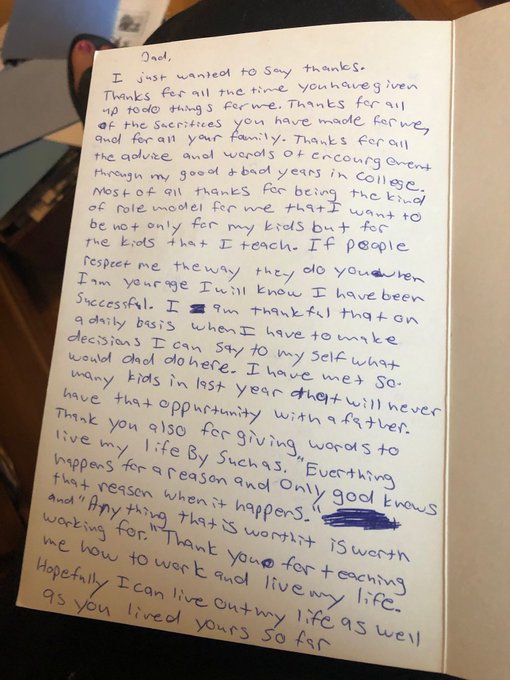 Dad,
I just wanted to say thanks.
Thanks for all the time you have given
up to do things for me. Thanks for all
of the sacrifices you have made for me,
and for all your family. Thanks for all
the advice and words of ercourgement
through my good + bad years in college.
Most of all thanks for being the kind
of role model for me that I want to
be not only for my kids but for
the kids that I teach. If people
respect me the way they do you when
I am your age I will know I have been
successful. I am thankful that on
a daily basis when I have to make
decisions I can say to my self what
would dad do here. I have met so
many kids in last year that will never
have that oppurtunity with a father.
Thank you also for giving words to
live my life By Such as. "Everthing
happens for a reason and Only good knows
that reason when it happens."
and "Any thing that is worth it is worth
working for." Thank you for teaching
me how to work and live my life.
Hopefully I can live out my life as well
as you lived yours so far